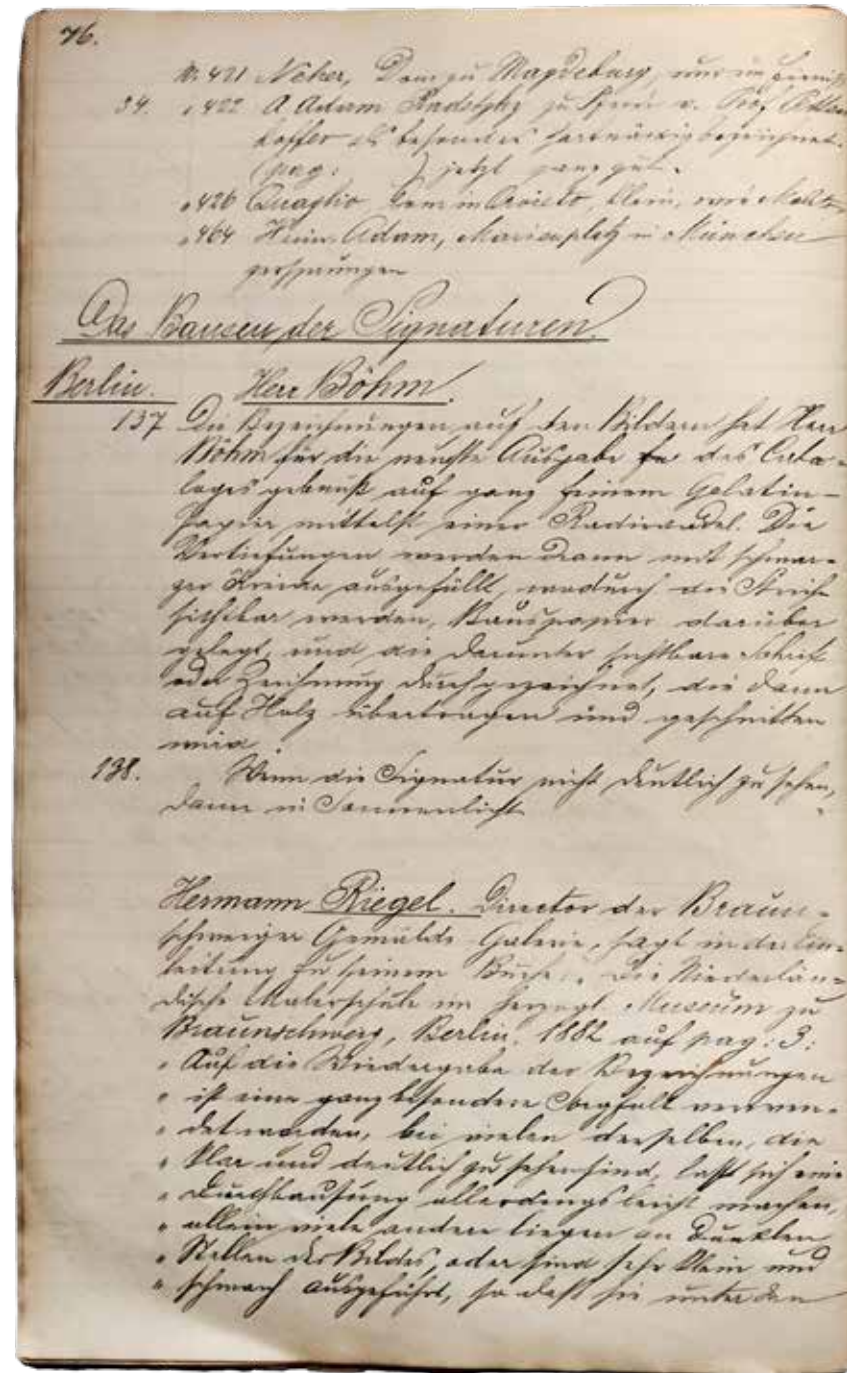 76.
N. 421 Neher, Dom zu Magdeburg, nur im Firniß
34. " 422 A Adam Radetzky zu Pferde v. Prof Petten
koffer als besonders hartnäckig bezeichnet.
(pag: ) jetzt ganz gut.
" 426 Quaglio, Dom in Orvieto, klein,
" 464 Heinr. Adam, Marienplatz in München
zersprungen
Das Bausen der Signaturen.
Berlin. Herr Böhm.
137 Die Bezeichnungen auf den Bildern hat Herr
Böhm für die neuste Ausgabe des Cata-
loges gebaust auf ganz feinem Gelatin-
Papier mittelst einer Radirnadel. Die
Vertiefungen werden dann mit schwar-
zer Kreide ausgefüllt, wodurch die Striche
sichtbar werden, Bauspapier darüber
gelegt, und die darunter sichtbare Schrift
oder Zeichnung durchgezeichnet, die dann
auf Holz übertragen und geschnitten
wird.
138. Wenn die Signatur nicht deutlich zu sehen,
dann in Sonnenlicht.
Hermann Riegel. Director der Braun-
schweiger Gemälde Galerie, sagt in der Ein-
leitung zu seinem Buche: "Die Niederlän-
dische Malerschule im herzogl. Museum zu
Braunschweig, Berlin. 1882 auf pag: 3:
" Auf die Wiedergabe der Bezeichnungen
" ist eine ganz besondere Sorgfalt verwen-
" det worden, bei vielen derselben, die
" klar und deutlich zu sehen sind, läßt sich eine
" Durchbausung allerdings leicht machen,
" allein viele andere liegen an dunklen
" Stellen des Bildes, oder sind sehr klein und
" schwach ausgeführt, so daß sie unter den